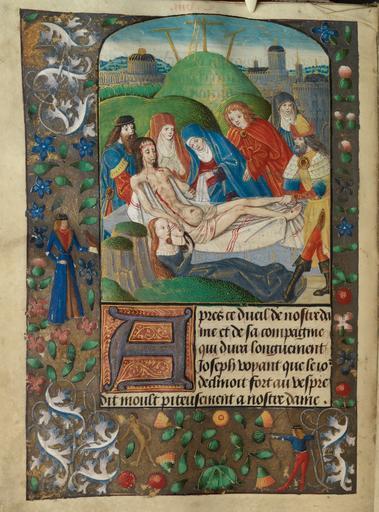 Apres ce dueil de nostre da
me et de sa compagnie
qui dura longuement
Joseph voyant que le io2
declinoit fort au vespre
dit moult piteusement a nostre dame .